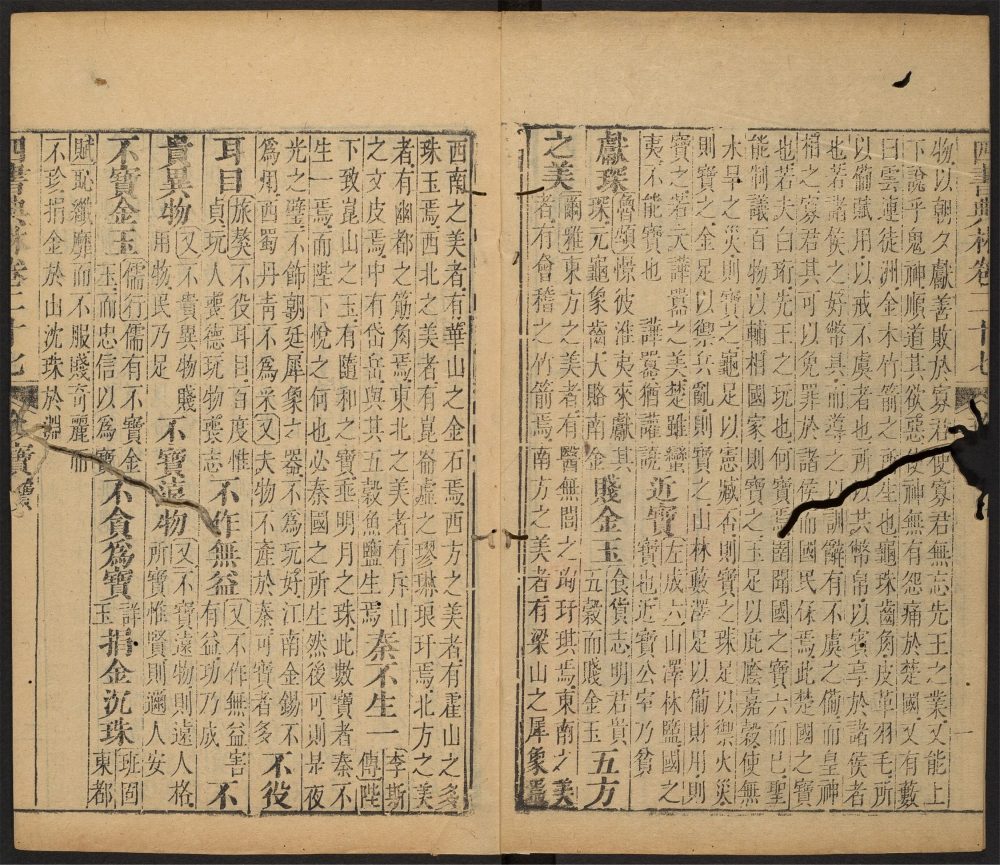 物以朝夕獻善敗於寡君使寡君無忘先王之業又能上
下說乎鬼神順道其欲惡使神無有怨痛於楚國又有藪
曰雲連徒洲金木竹箭之所生也龜珠齒角皮革羽毛所
以備賦用以戒不虞者也所以共幣帛以賓享於諸侯者
也若諸侯之好幣具而導之以訓辭有不虞之備而皇神
相之寡君其可以免罪於諸侯而國民保焉此楚國之寶
也若夫白珩先王之玩也何寶焉圉聞國之寶六而已聖
能制議百物以輔相國家則寶之玉足以庇廕嘉穀使無
水旱之災則寶之龜足以憲臧否則寶之珠足以禦火災
則寶之金足以禦兵亂則寶之山林藪澤足以備財用則
寶之若夫譁囂之美楚雖蠻
夷不能寶也 譁囂猶讙譊 近寶 左成六山澤林鹽國之寶也近寶公室乃貧
獻琛 魯頌憬彼淮夷來獻其琛元龜象齒大賂南金 賤金玉 食貨志明君貴五穀而賤金玉 五方
之美 爾雅東方之美者有醫無閭之珣玗琪焉東南之美者有會稽之竹箭焉南方之美者有梁山之犀象焉
西南之美者有華山之金石焉西方之美者有霍山之多
珠玉焉西北之美者有崑崙虛之璆琳琅玕焉北方之美
者有幽都之筋角焉東北之美者有斥山
之文皮焉中有岱岳與其五穀魚鹽生焉 秦不生一 李斯傳陛
下致崑山之玉有隨和之寶垂明月之珠此數寶者秦不
生一焉而陛下悅之何也必秦國之所生然後可則是夜
光之璧不飾朝廷犀象之器不為玩好江南金錫不
為用西蜀丹青不為采又夫物不產於秦可寶者多 不役
耳目 旅獒不役耳目百度惟貞玩人喪德玩物喪志 不作無益 又不作無益害有益功乃成 不
貴異物 又不貴異物賤用物民乃足 不寶遠物 又不寶遠物則遠人格所寶惟賢則邇人安
不寶金玉 儒行儒有不寶金玉而忠信以為寶 不貪為寶 詳玉 捐金沉珠 班固東都
賦恥纖靡而不服賤奇麗而
不珍捐金於山沈珠於淵
四書典林卷二十七 寶